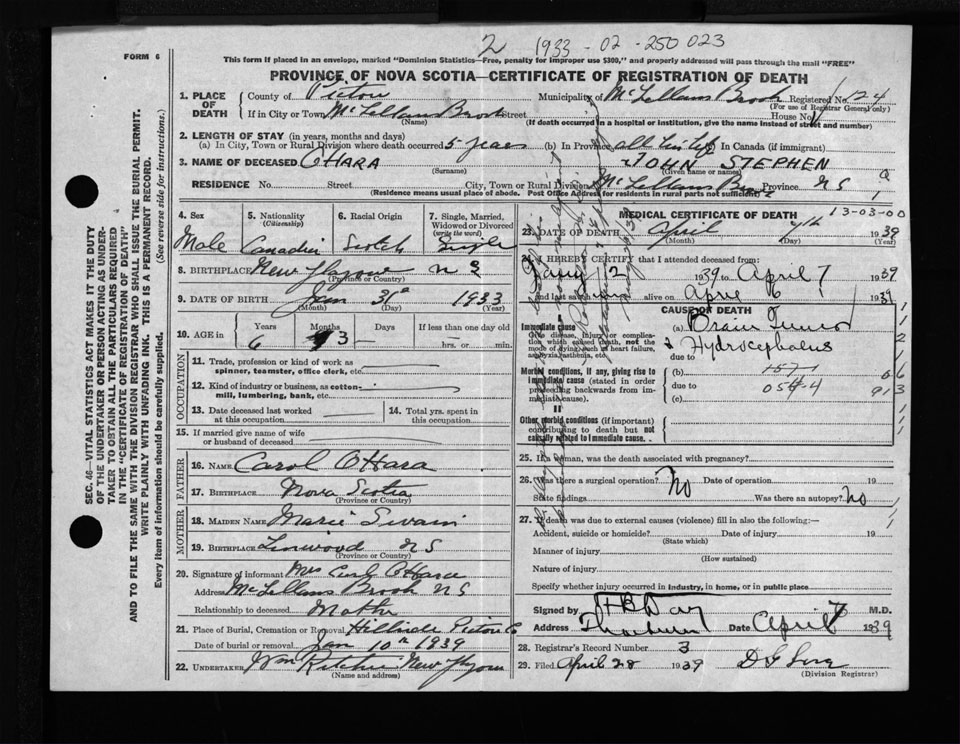 2 1933 - 02 - 250 023
FORM 6
This form if placed in an envelope, marked "Dominion Statistics—Free, penalty for improper use $300," and properly addressed will pass through the mail "FREE"
PROVINCE OF NOVA SCOTIA—CERTIFICATE OF REGISTRATION OF DEATH
1. PLACE OF DEATH
County of Pictou Municipality of McLellans Brook Registered No. 124
(For use of Registrar General only)
If in City or Town McLellans Brook Street House No.
(Name) (If death occurred in a hospital or institution, give the name instead of street and number)
2. LENGTH OF STAY (in years, months and days)
(a) In City, Town or Rural Division where death occurred 5 years (b) In Province all his life In Canada (if immigrant)
3. NAME OF DECEASED O'HARA JOHN STEPHEN
(Surname) (Given name or names)
RESIDENCE No. Street City, Town or Rural Division McLellans Brook Province NS
(Residence means usual place of abode. Post Office Address for residents in rural parts not sufficient)
4. Sex
Male
5. Nationality
(Citizenship)
Canadian
6. Racial Origin
Scotch
7. Single, Married, Widowed or Divorced
(write the word)
Single
8. BIRTHPLACE New Glasgow NS
(Province or Country)
9. DATE OF BIRTH Jan 31st 1933
(Month) (Day) (Year)
10. AGE in
Years Months Days If less than one day old
6 3 — hrs. or min.
OCCUPATION
11. Trade, profession or kind of work as spinner, teamster, office clerk, etc.
12. Kind of industry or business, as cotton-mill, lumbering, bank, etc.
13. Date deceased last worked at this occupation
14. Total yrs. spent in this occupation
15. If married give name of wife or husband of deceased
FATHER
16. NAME Carol O'Hara
17. BIRTHPLACE Nova Scotia
(Province or Country)
MOTHER
18. MAIDEN NAME Marie Swain
19. BIRTHPLACE Linwood NS
(Province or Country)
20. Signature of informant Mrs Carl O'Hara
Address McLellans Brook NS
Relationship to deceased Mother
21. Place of Burial, Cremation or Removal Hillside Pictou Co
Date of burial or removal Jan 10th 1939
22. UNDERTAKER Wm Ritchie New Glasgow
(Name and address)
MEDICAL CERTIFICATE OF DEATH 13-03-00
23. DATE OF DEATH April 7th 1939
(Month) (Day) (Year)
24. I HEREBY CERTIFY that I attended deceased from:
Jany 12 1939 to April 7 1939
and last saw him alive on April 6 1939
CAUSE OF DEATH
Immediate cause
Give disease, injury or complication which caused death, not the mode of dying, such as heart failure, asphyxia, asthenia, etc.
(a) Brain Tumor
& Hydrocephalus
due to
Morbid conditions, if any, giving rise to immediate cause (stated in order proceeding backwards from immediate cause).
(b) 157-1
due to 054-4
(c)
II
Other morbid conditions (if important) contributing to death but not causally related to immediate cause.
25. If a woman, was the death associated with pregnancy?
26. Was there a surgical operation? No Date of operation 19
State findings Was there an autopsy? No
27. If death was due to external causes (violence) fill in also the following:—
Accident, suicide or homicide? Date of injury 19
(State which)
Manner of injury
(How sustained)
Nature of injury
Specify whether injury occurred in industry, in home, or in public place
Signed by H B Day M.D.
Address Thorburn Date April 7 1939
28. Registrar's Record Number 3
29. Filed April 28 1939
(Division Registrar)
SEC. 46—VITAL STATISTICS ACT MAKES IT THE DUTY
OF THE UNDERTAKER OR PERSON ACTING AS UNDER-
TAKER TO OBTAIN ALL THE PARTICULARS REQUIRED
IN THE "CERTIFICATE OF REGISTRATION OF DEATH"
AND TO FILE THE SAME WITH THE DIVISION REGISTRAR WHO SHALL ISSUE THE BURIAL PERMIT.
WRITE PLAINLY WITH UNFADING INK. THIS IS A PERMANENT RECORD.
Every item of information should be carefully supplied. (See reverse side for instructions.)